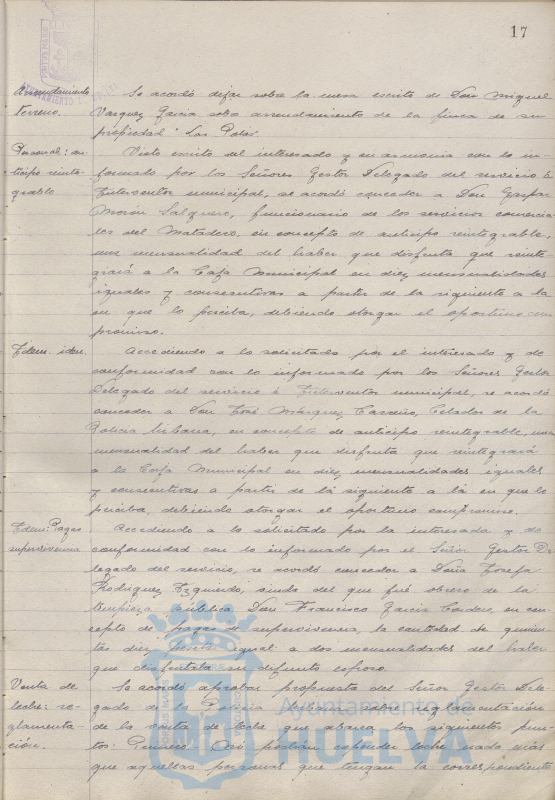 17
Arrendamiento
terreno.
Se acordó dejar sobre la mesa escrito de Don Miguel
Vazquez Garcia sobre arrendamiento de la finca de su
propiedad "Las Patas.
Personal: an-
ticipo reinte-
grable
Visto escrito del interesado y en armonia con lo in-
formado por los Señores Gestor Delegado del servicio é
Interventor municipal, se acordó conceder a Don Gaspar
Morón Salguero, funcionario de los servicios comercia-
les del Matadero, en concepto de anticipo reintegrable,
una mensualidad del haber que disfruta que reinte-
grará a la Caja Municipal en diez mensualidades
iguales y consecutivas a partir de la siguiente a la
en que lo perciba, debiendo otorgar el oportuno com-
promiso.
Idem. idem.
Accediendo a lo solicitado por el interesado y de
conformidad con lo informado por los Señores Gestor
Delegado del servicio é Interventor municipal, se acordó
conceder a Don José Márquez Celador de la
Policia Urbana, en concepto de anticipo reintegrable, una
mensualidad del haber que disfruta que reintegrará
a la Caja Municipal en diez mensualidades iguales
y consecutivas a partir de la siguiente a la en que lo
perciba, debiendo otorgar el oportuno compromiso.
Idem: Pagas
supervivencia
Accediendo a lo solicitado por la interesada y de
conformidad con lo informado por el Señor Gestor De-
legado del servicio, se acordó conceder a Doña Josefa
Rodriguez Izquierdo, viuda del que fué obrero de la
limpieza pública Don Francisco Garcia Cordero, en con-
cepto de pagas de supervivencia, la cantidad de quinien-
tas diez pesetas igual a dos mensualidades del haber
que disfrutaba su difunto esposo.
Venta de
leche: re-
glamenta-
ción.
Se acordó aprobar propuesta del Señor Gestor Dele-
gado de la Policia Urbana sobre reglamentación
de la venta de leche que abarca los siguientes pun-
tos: Primero: No podrán expender leche nada más
que aquellas personas que tengan la correspondiente
Ayuntamiento de
HUELVA